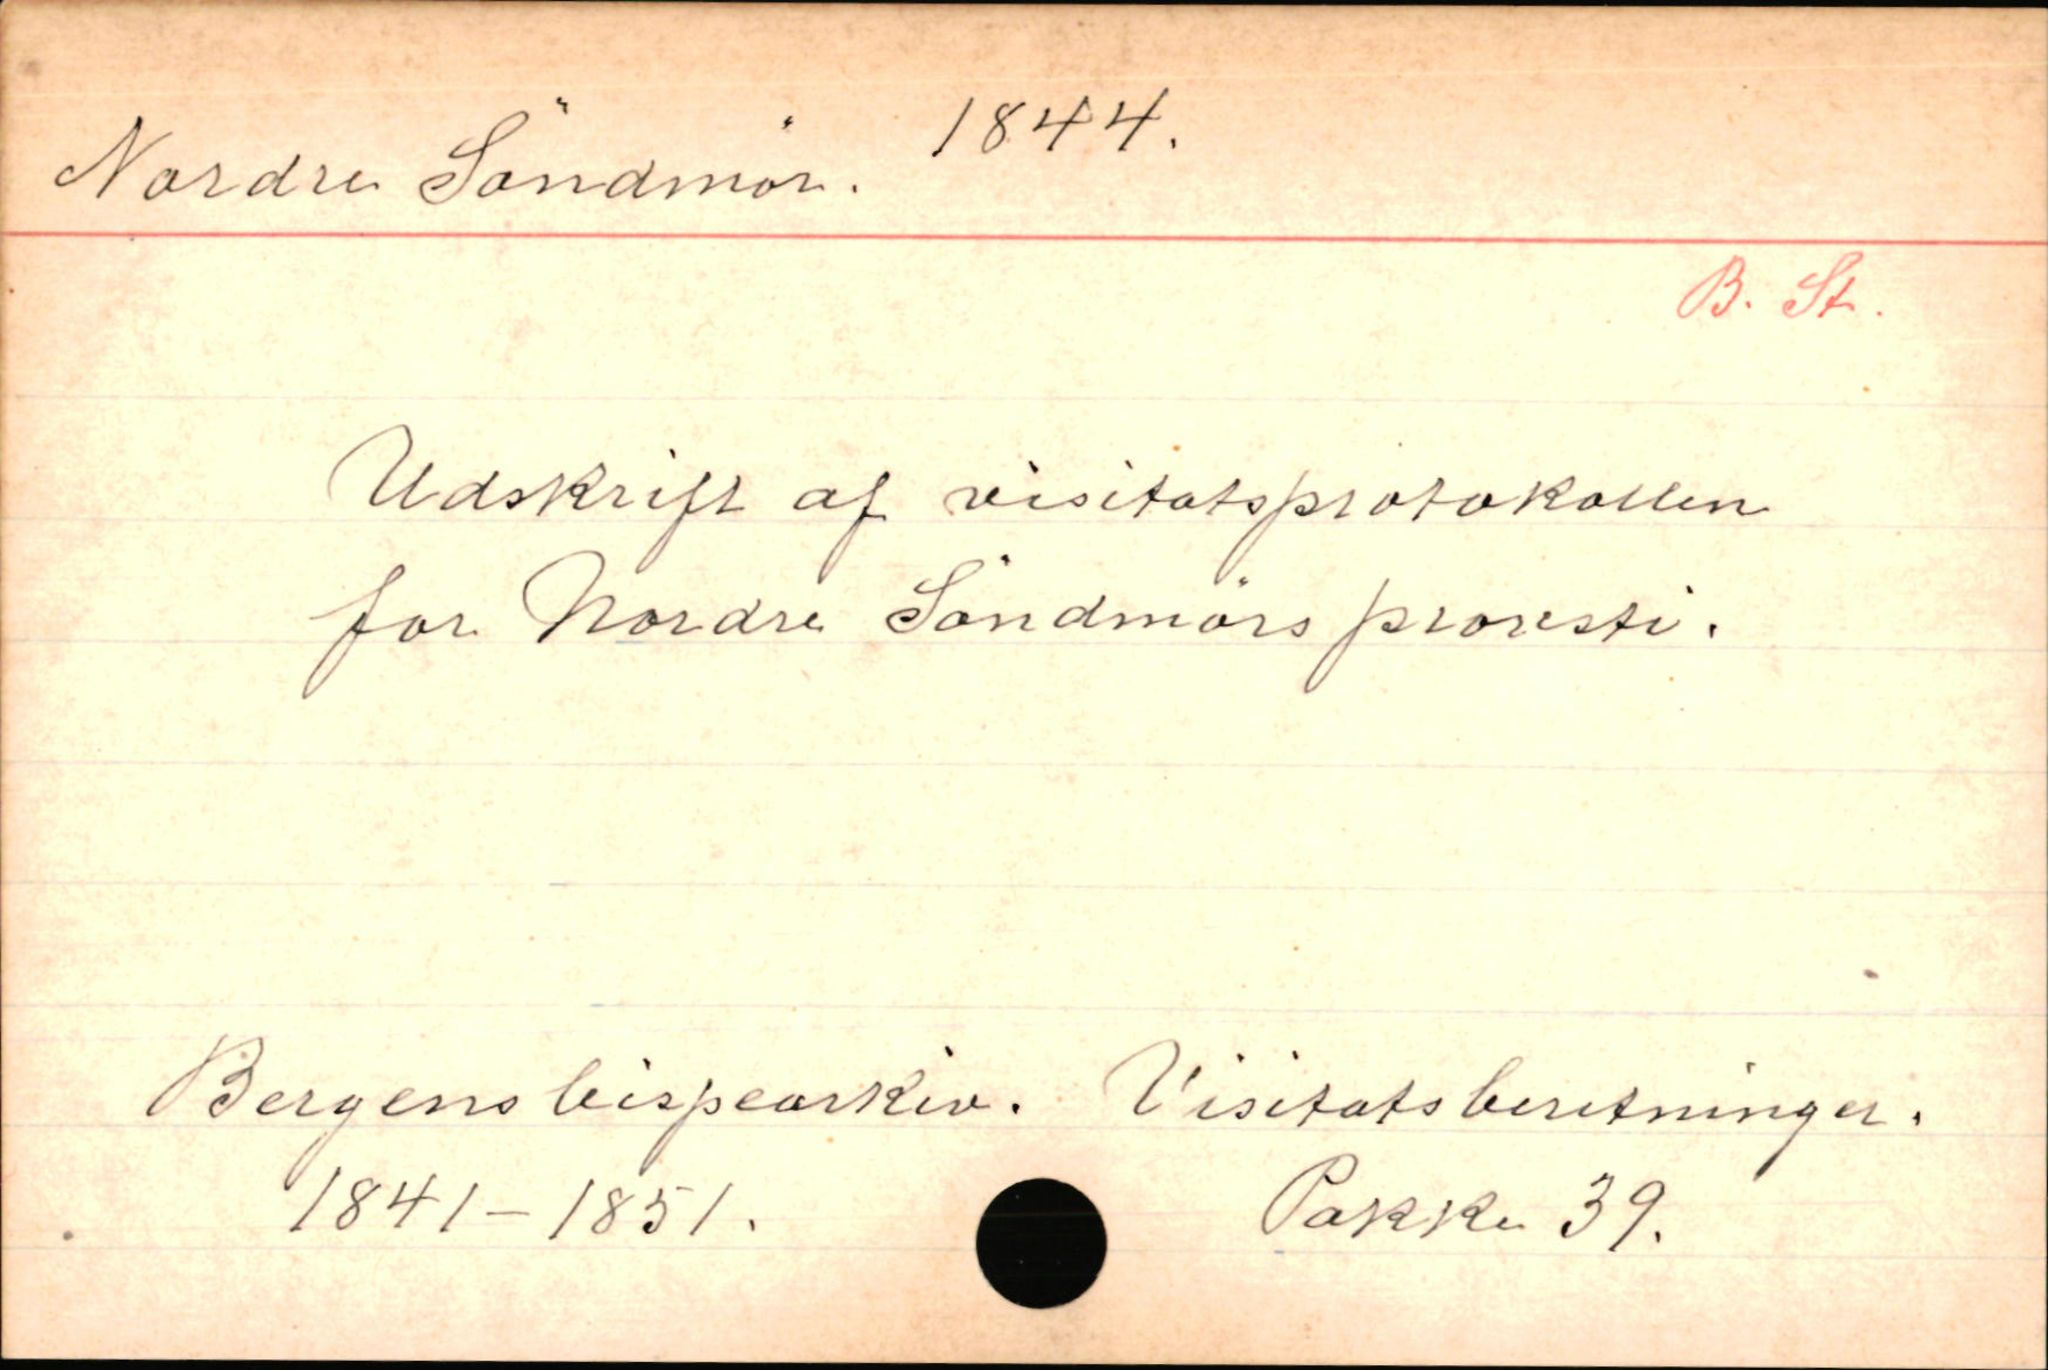 Nordre Söndmör. 1844.
B. St.
Udskrift af visitatsprotokollen
for Nordre Söndmörs provsti.
Bergens bispearkiv. Visitatsberetninger.
1841-1851. Pakke 39.